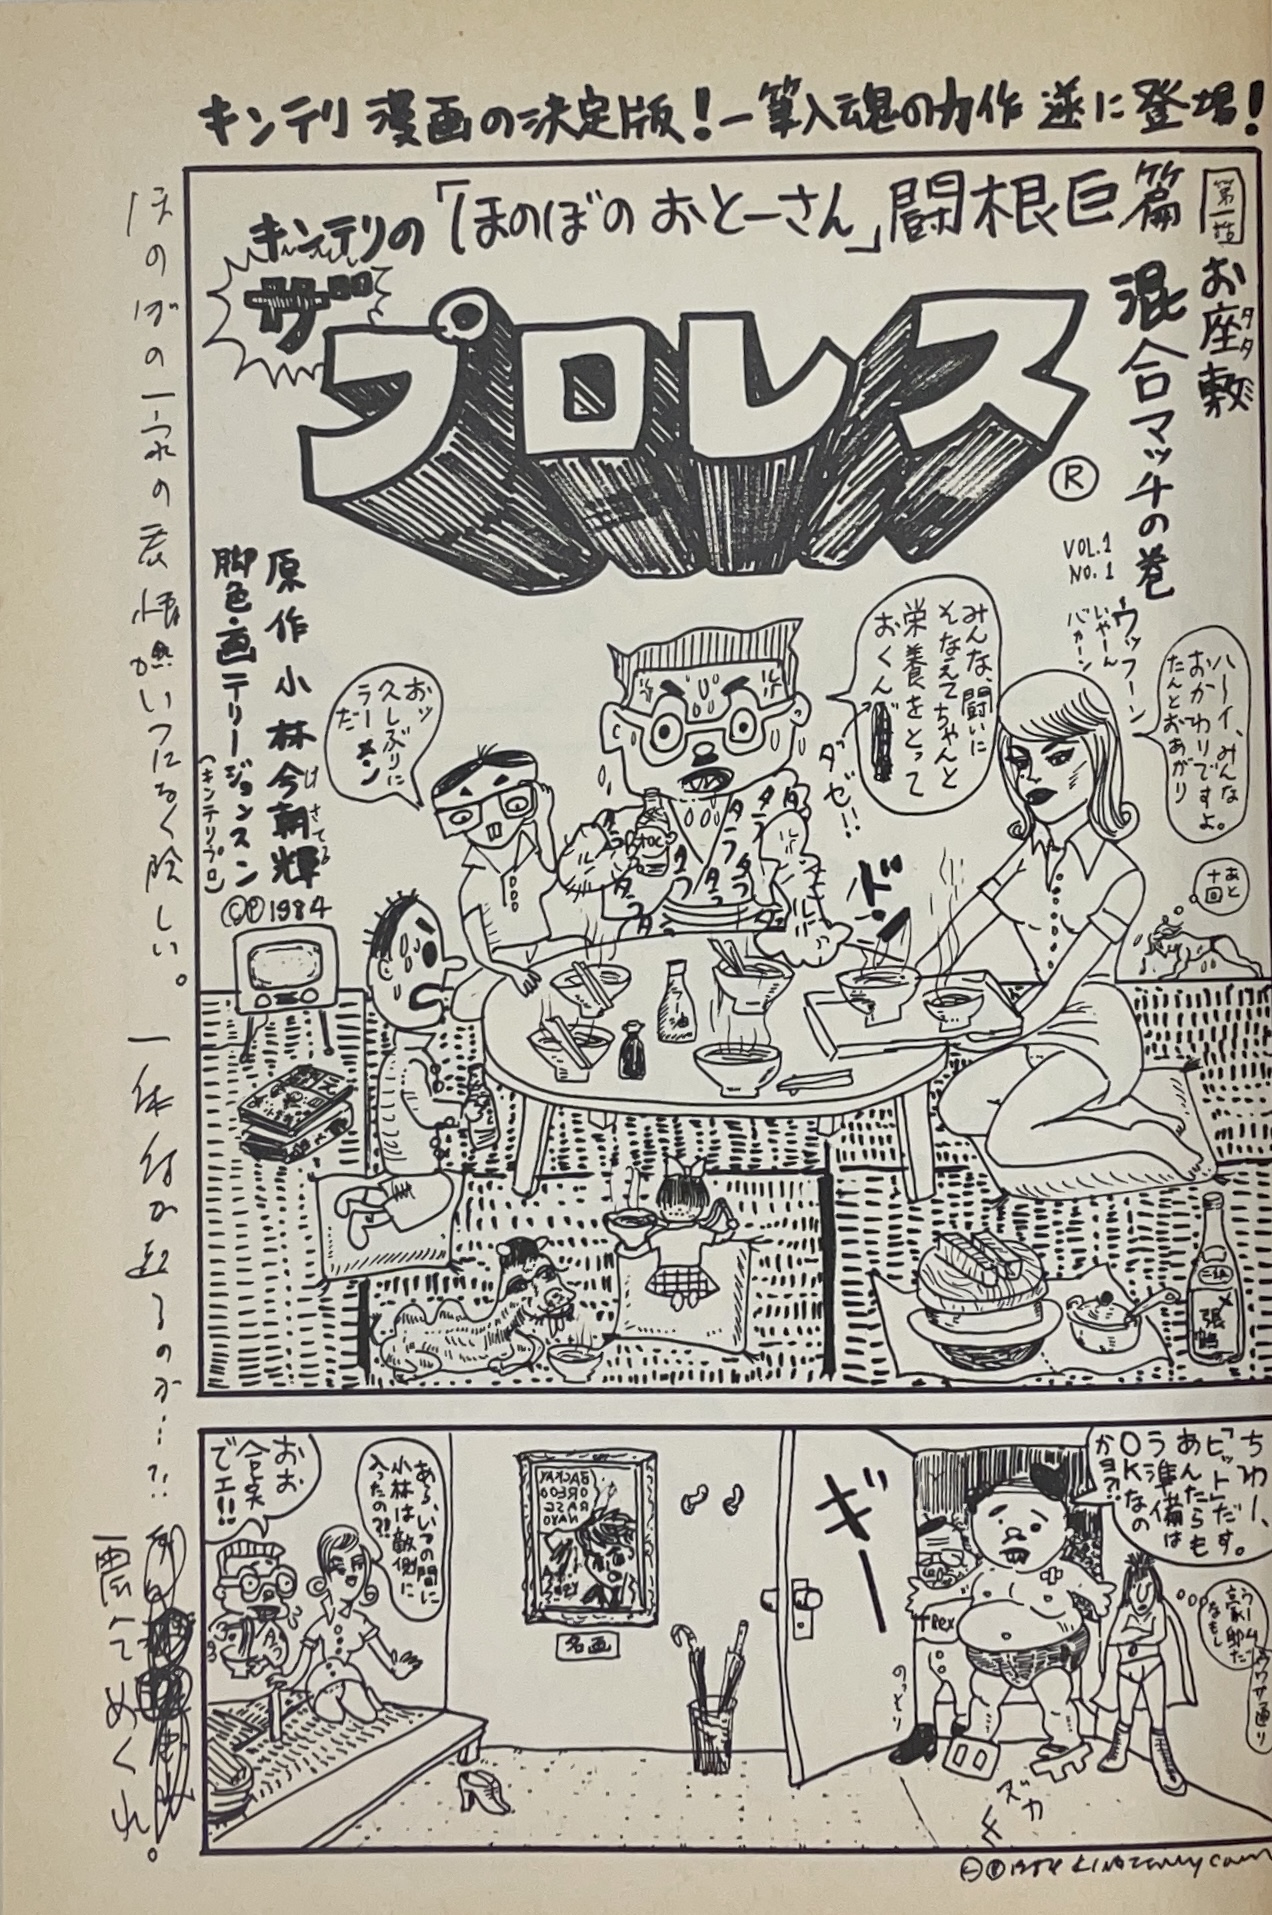 キンテリ漫画の決定版!一筆入魂の力作遂に登場!
キンテリの「ほのぼのおとーさん」闘根巨篇
ザ
プロレス
®
第一話
お座敷
タタ
混合マッチの巻
VOL.1
NO.1
ウッフーン
いやーん
バカーン
ハーイ、みんな
おかわりですよ。
たんとおあがり
みんな、闘いに
そなえてちゃんと
栄養をとって
おくん
ダゼ!!
おッ
久しぶりに
ラーメン
だ
原作 小林今朝輝
げさてる
脚色・画テリー・ジョンスン
(キンテリプロ)
©℗1984
あと
十回
ドン
〆張鶴
ほのぼの一家の表情が
いつになく険しい。
一体何が起るのか…?!
震えてめくれ。
ちわー、
「ピット」だす。
あんたらも
う準備は
OKなの
かヨ?!
うーム
豪邸だ
なもし
ウワサ通り
ギー
T Rex
のっそり
ズカ
名画
あら、いつの間に
小林は敵側に
入ったの?!
おお
合点
でエ!!